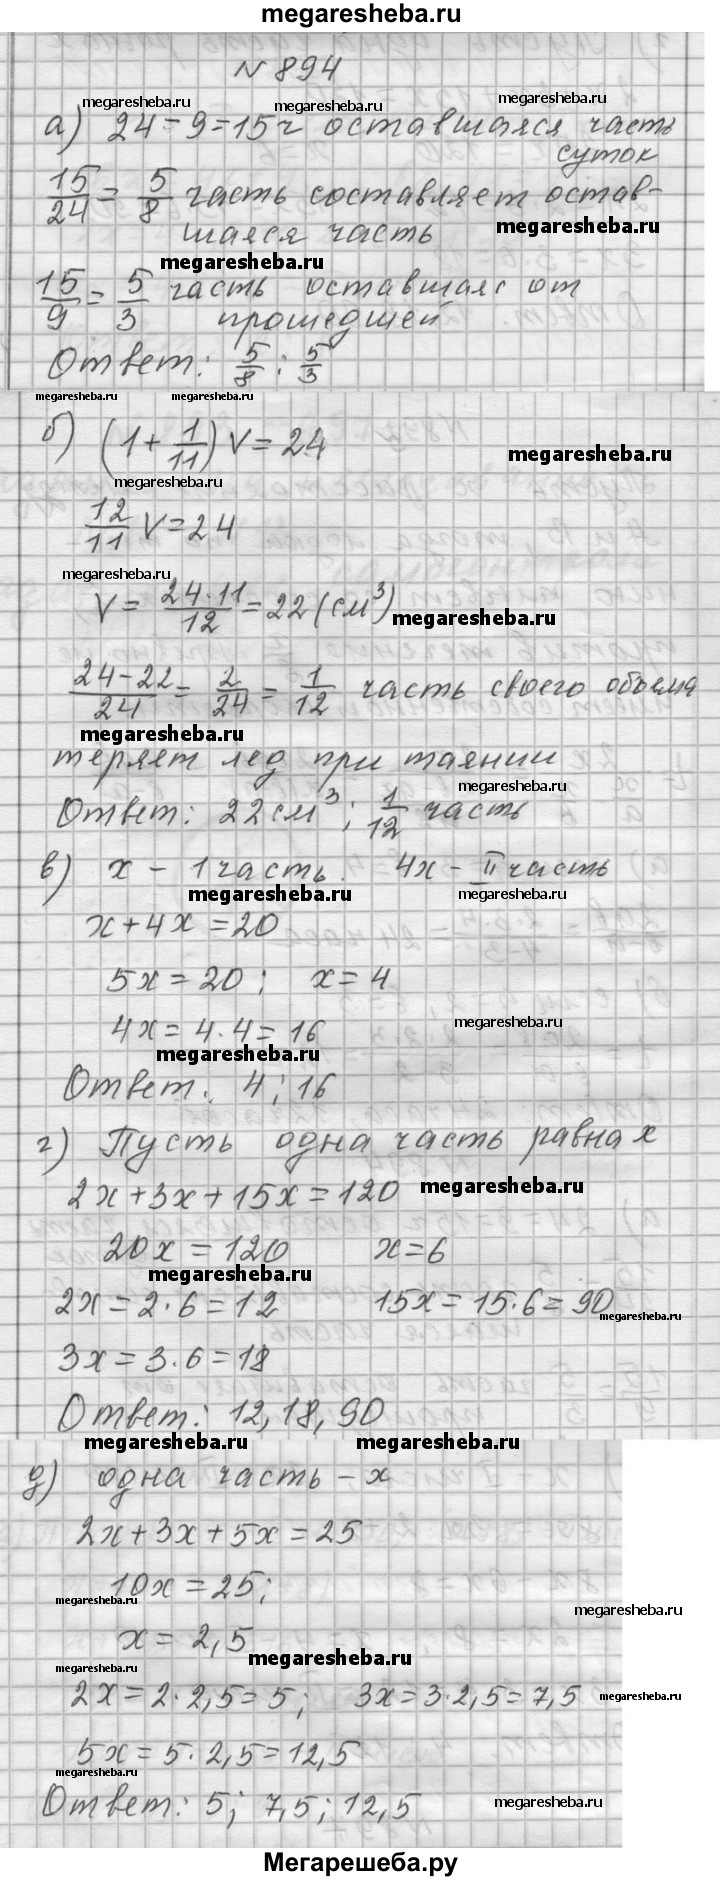 megaresheba.ru
N 894
megaresheba.ru megaresheba.ru megaresheba.ru
а) 24-9=15ч оставшаяся часть
суток
15/24 = 5/8 часть составляет остав-
megaresheba.ru
шаяся часть
megaresheba.ru
15/9 = 5/3 часть оставшаяс от
прошедшей
Ответ: 5/8; 5/3
megaresheba.ru megaresheba.ru
б) (1+1/11)V=24
megaresheba.ru
megaresheba.ru
12/11 V=24
megaresheba.ru
V= 24·11/12 =22 (см³)
megaresheba.ru
24-22/24 = 2/24 = 1/12 часть своего объема
megaresheba.ru
теряет лед при таянии
megaresheba.ru
Ответ: 22см³; 1/12 часть
в) х – 1 часть. 4х – II часть
megaresheba.ru
х+4х=20
5х=20; х=4
4х=4·4=16
megaresheba.ru
megaresheba.ru
Ответ: 4; 16
г) Пусть одна часть равна х
2х+3х+15х=120
megaresheba.ru
20х=120 х=6
megaresheba.ru
2х=2·6=12 15х=15·6=90
megaresheba.ru
3х=3·6=18
Ответ: 12, 18, 90
megaresheba.ru megaresheba.ru
д) одна часть – х
2х+3х+5х=25
10х=25;
megaresheba.ru
megaresheba.ru
х=2,5
megaresheba.ru
megaresheba.ru
2х=2·2,5=5; 3х=3·2,5=7,5
megaresheba.ru
5х=5·2,5=12,5
megaresheba.ru
Ответ: 5; 7,5; 12,5
megaresheba.ru
Мегарешеба.ру